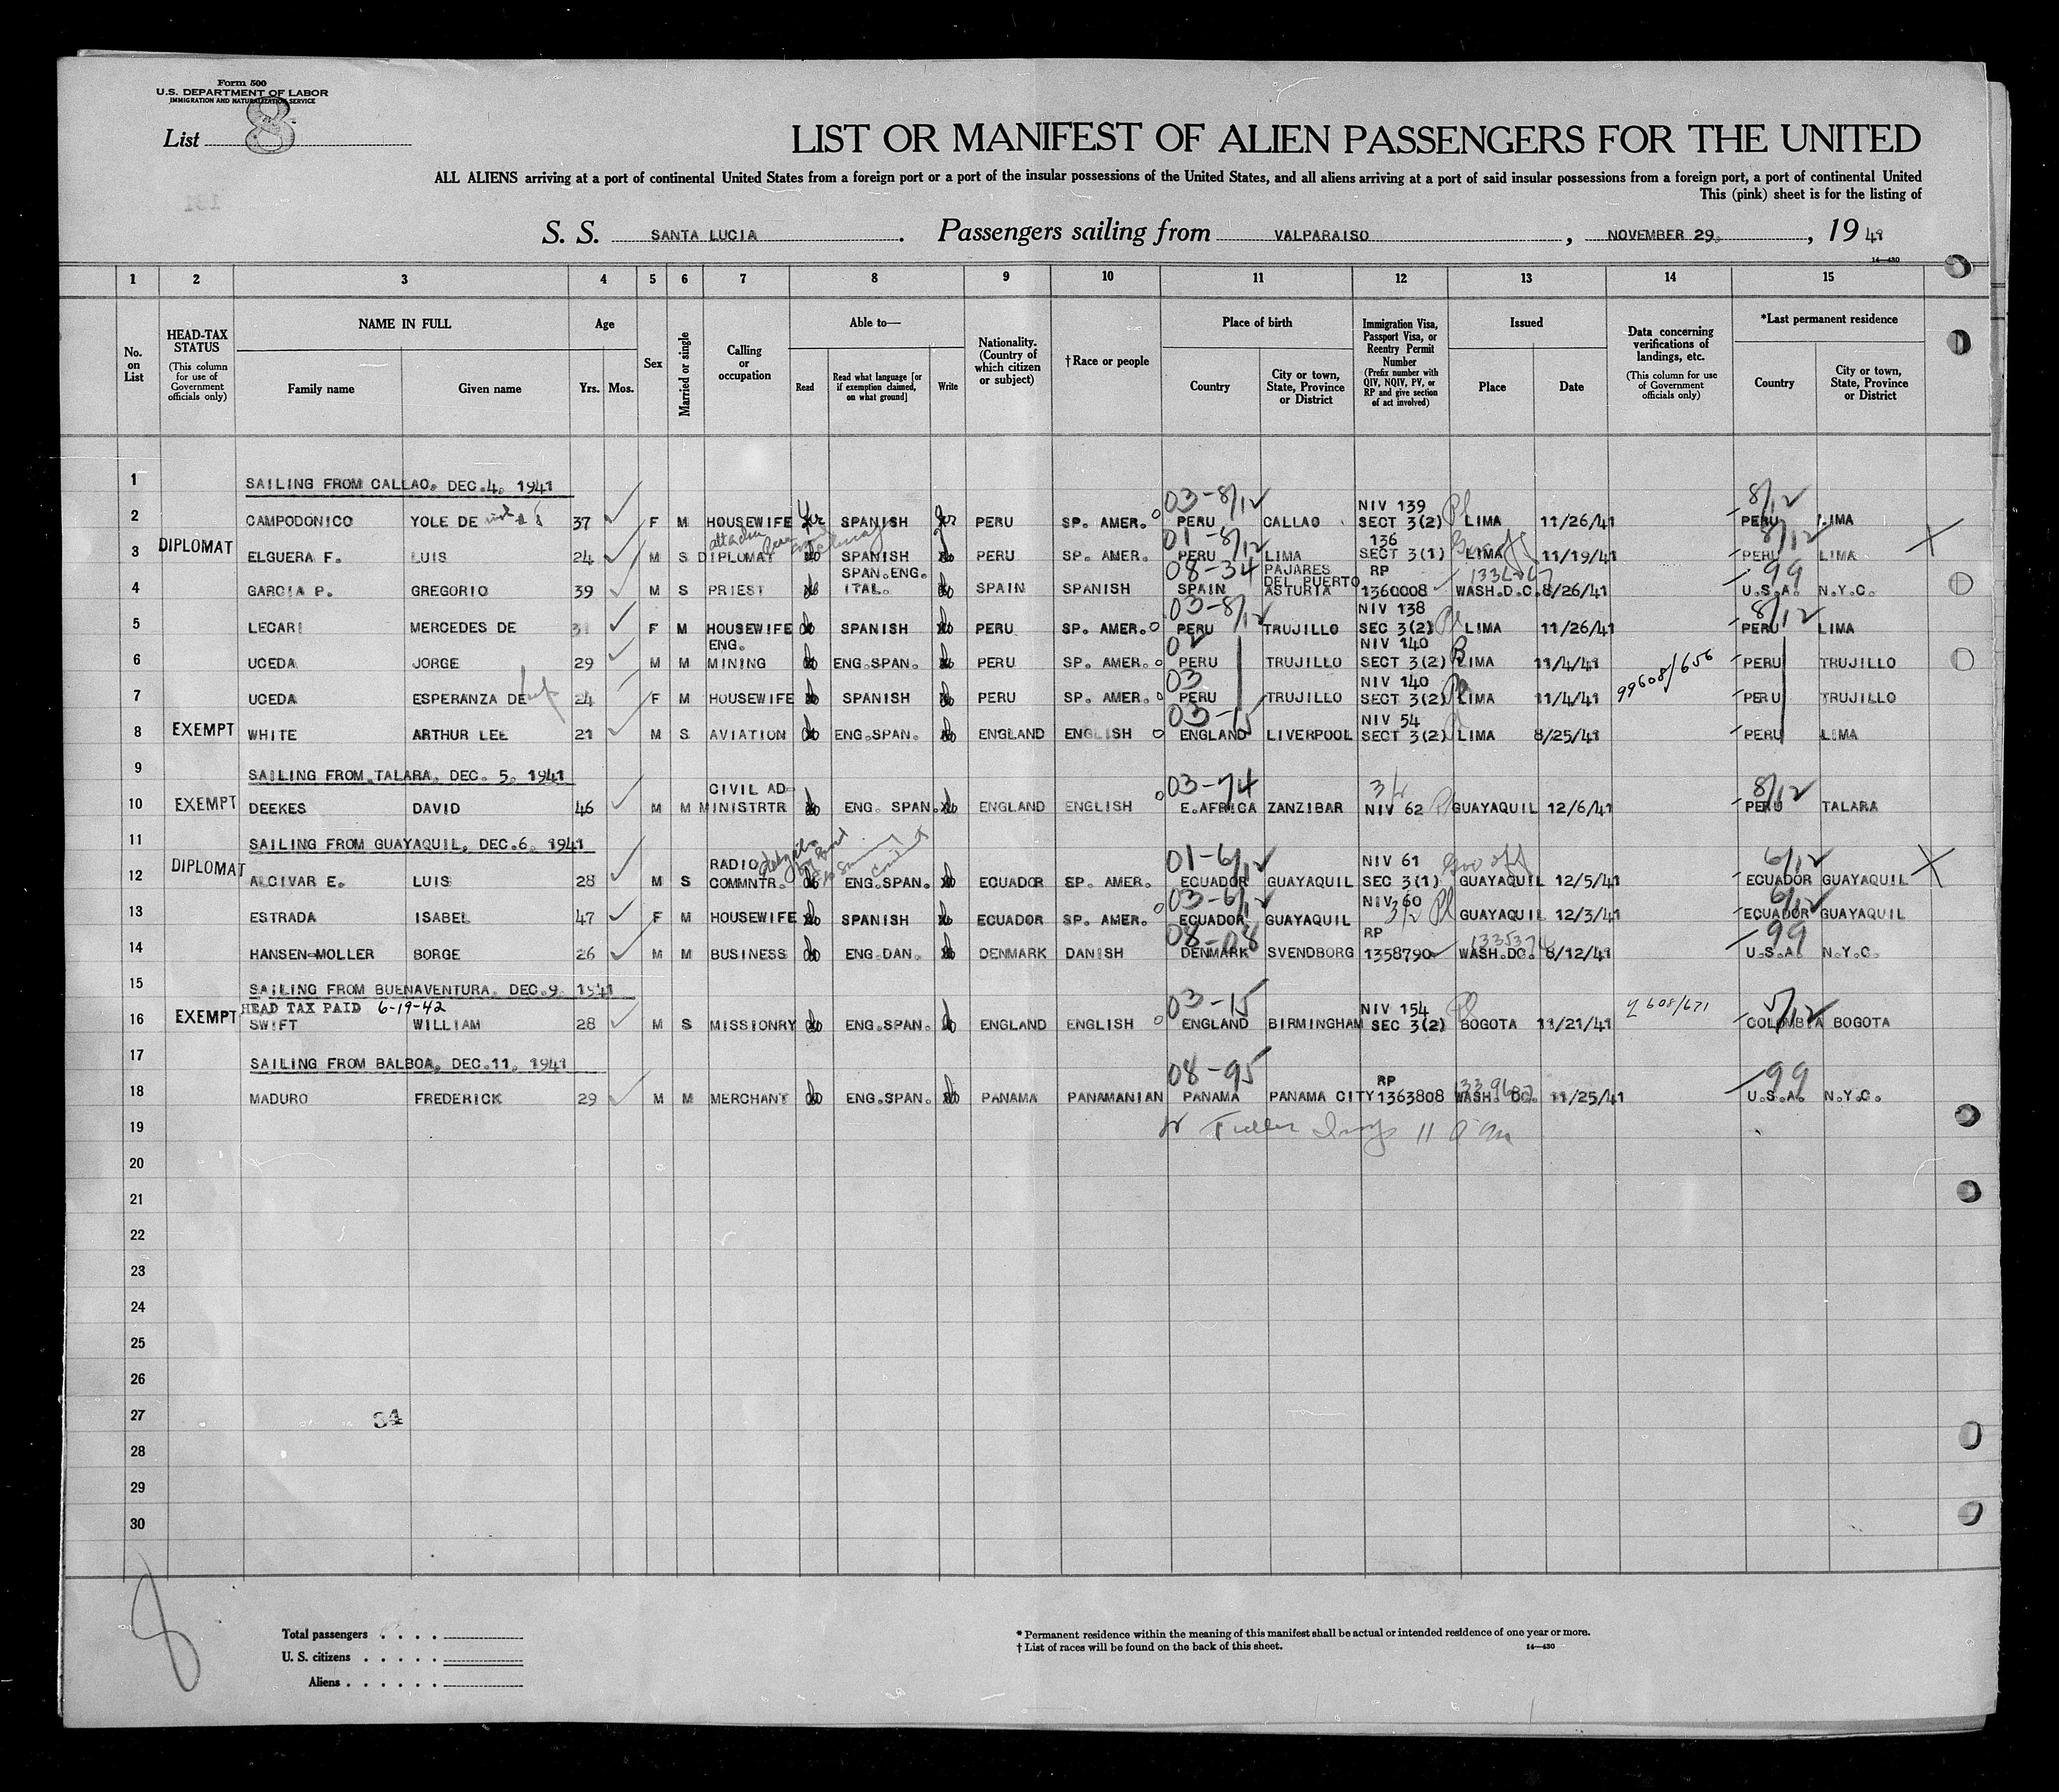 Form 500
U.S. DEPARTMENT OF LABOR
IMMIGRATION AND NATURALIZATION SERVICE
List 8
LIST OR MANIFEST OF ALIEN PASSENGERS FOR THE UNITED
ALL ALIENS arriving at a port of continental United States from a foreign port or a port of the insular possessions of the United States, and all aliens arriving at a port of said insular possessions from a foreign port, a port of continental United
This (pink) sheet is for the listing of
S. S. SANTA LUCIA. Passengers sailing from VALPARAISO, NOVEMBER 29, 1941
14—430
1 2 3 4 5 6 7 8 9 10 11 12 13 14 15
No. on List
HEAD-TAX STATUS
(This column for use of Government officials only)
NAME IN FULL
Family name
Given name
Age
Yrs. Mos.
Sex
Married or single
Calling or occupation
Able to—
Read
Read what language [or if exemption claimed, on what ground]
Write
Nationality. (Country of which citizen or subject)
†Race or people
Place of birth
Country
City or town, State, Province or District
Immigration Visa, Passport Visa, or Reentry Permit Number
(Prefix number with QIV, NQIV, PV, or RP and give section of act involved)
Issued
Place
Date
Data concerning verifications of landings, etc.
(This column for use of Government officials only)
*Last permanent residence
Country
City or town, State, Province or District
1 SAILING FROM CALLAO. DEC.4. 1941
03-8/12 NIV 139 8/12
2 CAMPODONICO YOLE DE 37 F M HOUSEWIFE SPANISH PERU SP. AMER. PERU CALLAO SECT 3(2) LIMA 11/26/41 PERU LIMA
DIPLOMAT 01-8/12 136 8/12
3 ELGUERA F. LUIS 24 M S DIPLOMAT SPANISH PERU SP. AMER. PERU LIMA SECT 3(1) LIMA 11/19/41 PERU LIMA
SPAN.ENG. 08-34 PAJARES DEL PUERTO RP 99
4 GARCIA P. GREGORIO 39 M S PRIEST ITAL. SPAIN SPANISH SPAIN ASTURIA 1360008 WASH.D.C. 8/26/41 U.S.A. N.Y.C.
03-8/12 NIV 138 8/12
5 LECARI MERCEDES DE 31 F M HOUSEWIFE SPANISH PERU SP. AMER. PERU TRUJILLO SEC 3(2) LIMA 11/26/41 PERU LIMA
ENG. 02 NIV 140
6 UCEDA JORGE 29 M M MINING ENG.SPAN. PERU SP. AMER. PERU TRUJILLO SECT 3(2) LIMA 11/4/41 PERU TRUJILLO
03 NIV 140 99608/656
7 UCEDA ESPERANZA DE 24 F M HOUSEWIFE SPANISH PERU SP. AMER. PERU TRUJILLO SECT 3(2) LIMA 11/4/41 PERU TRUJILLO
03-15 NIV 54
8 EXEMPT WHITE ARTHUR LEE 21 M S AVIATION ENG.SPAN. ENGLAND ENGLISH ENGLAND LIVERPOOL SECT 3(2) LIMA 8/25/41 PERU LIMA
9 SAILING FROM TALARA, DEC. 5, 1941
CIVIL AD- 03-74 8/12
10 EXEMPT DEEKES DAVID 46 M M MINISTRTR ENG. SPAN. ENGLAND ENGLISH E.AFRICA ZANZIBAR NIV 62 GUAYAQUIL 12/6/41 PERU TALARA
11 SAILING FROM GUAYAQUIL, DEC.6, 1941
DIPLOMAT RADIO 01-6/12 NIV 61 6/12
12 ALCIVAR E. LUIS 28 M S COMMNTR. ENG.SPAN. ECUADOR SP. AMER. ECUADOR GUAYAQUIL SEC 3(1) GUAYAQUIL 12/5/41 ECUADOR GUAYAQUIL
03-6/12 NIV 60 6/12
13 ESTRADA ISABEL 47 F M HOUSEWIFE SPANISH ECUADOR SP. AMER. ECUADOR GUAYAQUIL 3/2 GUAYAQUIL 12/3/41 ECUADOR GUAYAQUIL
08-08 RP 99
14 HANSEN-MOLLER BORGE 26 M M BUSINESS ENG.DAN. DENMARK DANISH DENMARK SVENDBORG 1358790 WASH.DC. 8/12/41 U.S.A. N.Y.C.
15 SAILING FROM BUENAVENTURA. DEC.9. 1941
HEAD TAX PAID 6-19-42 03-15 NIV 154 5/12
16 EXEMPT SWIFT WILLIAM 28 M S MISSIONRY ENG.SPAN. ENGLAND ENGLISH ENGLAND BIRMINGHAM SEC 3(2) BOGOTA 11/21/41 608/671 COLOMBIA BOGOTA
17 SAILING FROM BALBOA, DEC.11, 1941
08-95 RP 99
18 MADURO FREDERICK 29 M M MERCHANT ENG.SPAN. PANAMA PANAMANIAN PANAMA PANAMA CITY 1363808 WASH. DC. 11/25/41 U.S.A. N.Y.C.
19
20
21
22
23
24
25
26
27 34
28
29
30
8
Total passengers
U. S. citizens
Aliens
* Permanent residence within the meaning of this manifest shall be actual or intended residence of one year or more.
† List of races will be found on the back of this sheet. 14—430